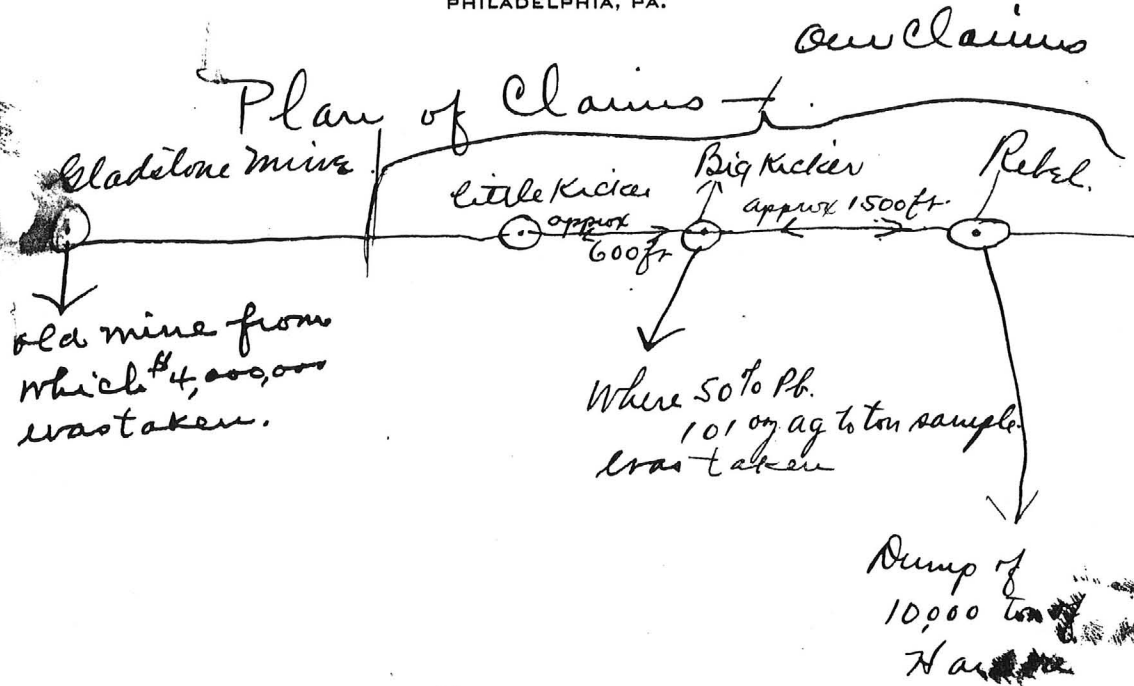 PHILADELPHIA, PA.
our Claims
Plan of Claims
Gladstone Mine
little Kicker
approx
600 ft
Big Kicker
approx 1500 ft.
Rebel.
old mine from
which $4,000,000
was taken.
Where 50% Pb.
101 oz ag to ton sample
was taken
Dump of
10,000 tons